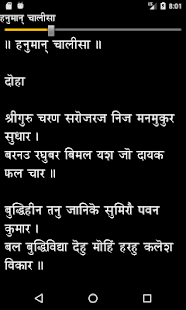 8:01
हनुमान् चालीसा
॥ हनुमान् चालीसा ॥
दॊहा
श्रीगुरु चरण सरॊजरज निज मनमुकुर
सुधार ।
बरनउ रघुबर बिमल यश जॊ दायक
फल चार ॥
बुद्धिहीन तनु जानिकॆ सुमिरौ पवन
कुमार ।
बल बुद्धिविद्या दॆहु मॊहिं हरहु कलॆश
विकार ॥